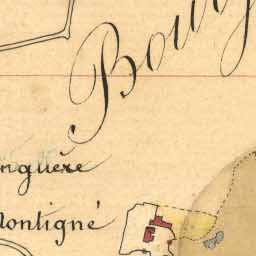 Bourg
nguère
Montigné